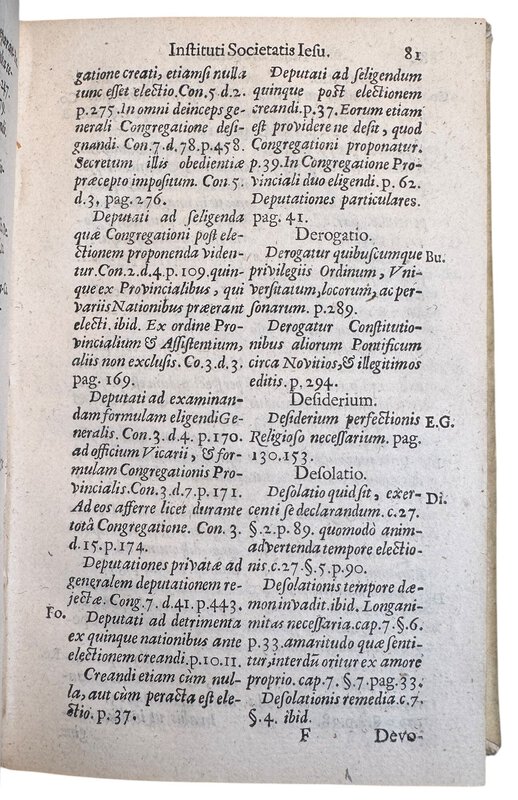 Instituti Societatis Iesu. 81
gatione creati, etiamsi nulla
tunc esset electio. Con. 5 d. 2.
p. 275. In omni deinceps ge-
nerali Congregatione desi-
gnandi. Con. 7. d. 78. p. 458.
Secretum illis obedientiæ
præcepto impositum. Con. 5.
d. 3, pag. 276.
Deputati ad seligenda
quæ Congregationi post ele-
ctionem proponenda viden-
tur. Con. 2. d. 4. p. 109. quin-
que ex Provincialibus, qui
variis Nationibus præerant
electi. ibid. Ex ordine Pro-
vincialium & Assistentium,
aliis non exclusis. Co. 3. d. 3.
pag. 169.
Deputati ad examinan-
dam formulam eligendi Ge-
neralis. Con. 3. d. 4. p. 170.
ad officium Vicarii, & for-
mulam Congregationis Pro-
vincialis. Con. 3. d. 7. p. 171.
Ad eos afferre licet durante
totâ Congregatione. Con. 3.
d. 15. p. 174.
Deputationes privatæ ad
generalem deputationem re-
jectæ. Cong. 7. d. 41. p. 443.
Fo.
Deputati ad detrimenta
ex quinque nationibus ante
electionem creandi. p. 10. 11.
Creandi etiam cùm nul-
la, aut cùm peracta est ele-
ctio. p. 37.
Deputati ad seligendum
quinque post electionem
creandi. p. 37. Eorum etiam
est providere ne desit, quod
Congregationi proponatur.
p. 39. In Congregatione Pro-
vinciali duo eligendi. p. 62.
Deputationes particulares.
pag. 41.
Derogatio.
Derogatur quibuscumque Bu.
privilegiis Ordinum, Vni-
versitatum, locorum, ac per-
sonarum. p. 289.
Derogatur Constitutio-
nibus aliorum Pontificum
circa Novitios, & illegitimos
editis. p. 294.
Desiderium.
Desiderium perfectionis E.G.
Religioso necessarium. pag.
130. 153.
Desolatio.
Desolatio quid sit, exer- Di.
centi se declarandum. c. 27.
§. 2. p. 89. quomodò anim-
advertenda tempore electio-
nis. c. 27. §. 5. p. 90.
Desolationis tempore dæ-
mon invadit. ibid. Longani-
mitas necessaria. cap. 7. §. 6.
p. 33. amaritudo quæ senti-
tur, interdū oritur ex amore
proprio. cap. 7. §. 7. pag. 33.
Desolationis remedia. c. 7.
§. 4. ibid.
F Devo-